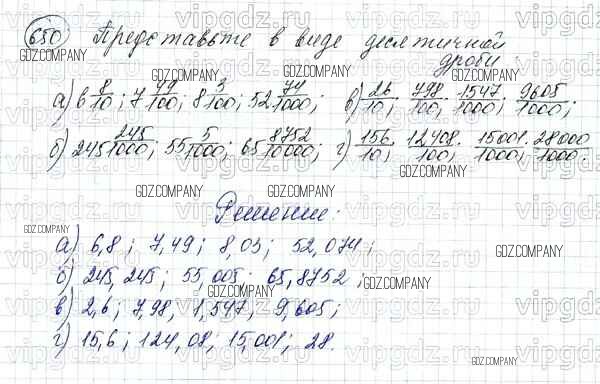 650 Представьте в виде десятичной
дроби:
а) 6 8/10; 7 49/100; 8 3/100; 52 74/1000; в) 26/10; 798/100; 1547/1000; 9605/1000;
б) 245 245/1000; 55 5/1000; 65 8752/10000; г) 156/10; 12408/100; 15001/1000; 28000/1000.
Решение:
а) 6,8; 7,49; 8,03; 52,074;
б) 245,245; 55,005; 65,8752;
в) 2,6; 7,98, 1,547; 9,605;
г) 15,6; 124,08; 15,001; 28.
GDZ.COMPANY
vipgdz.ru